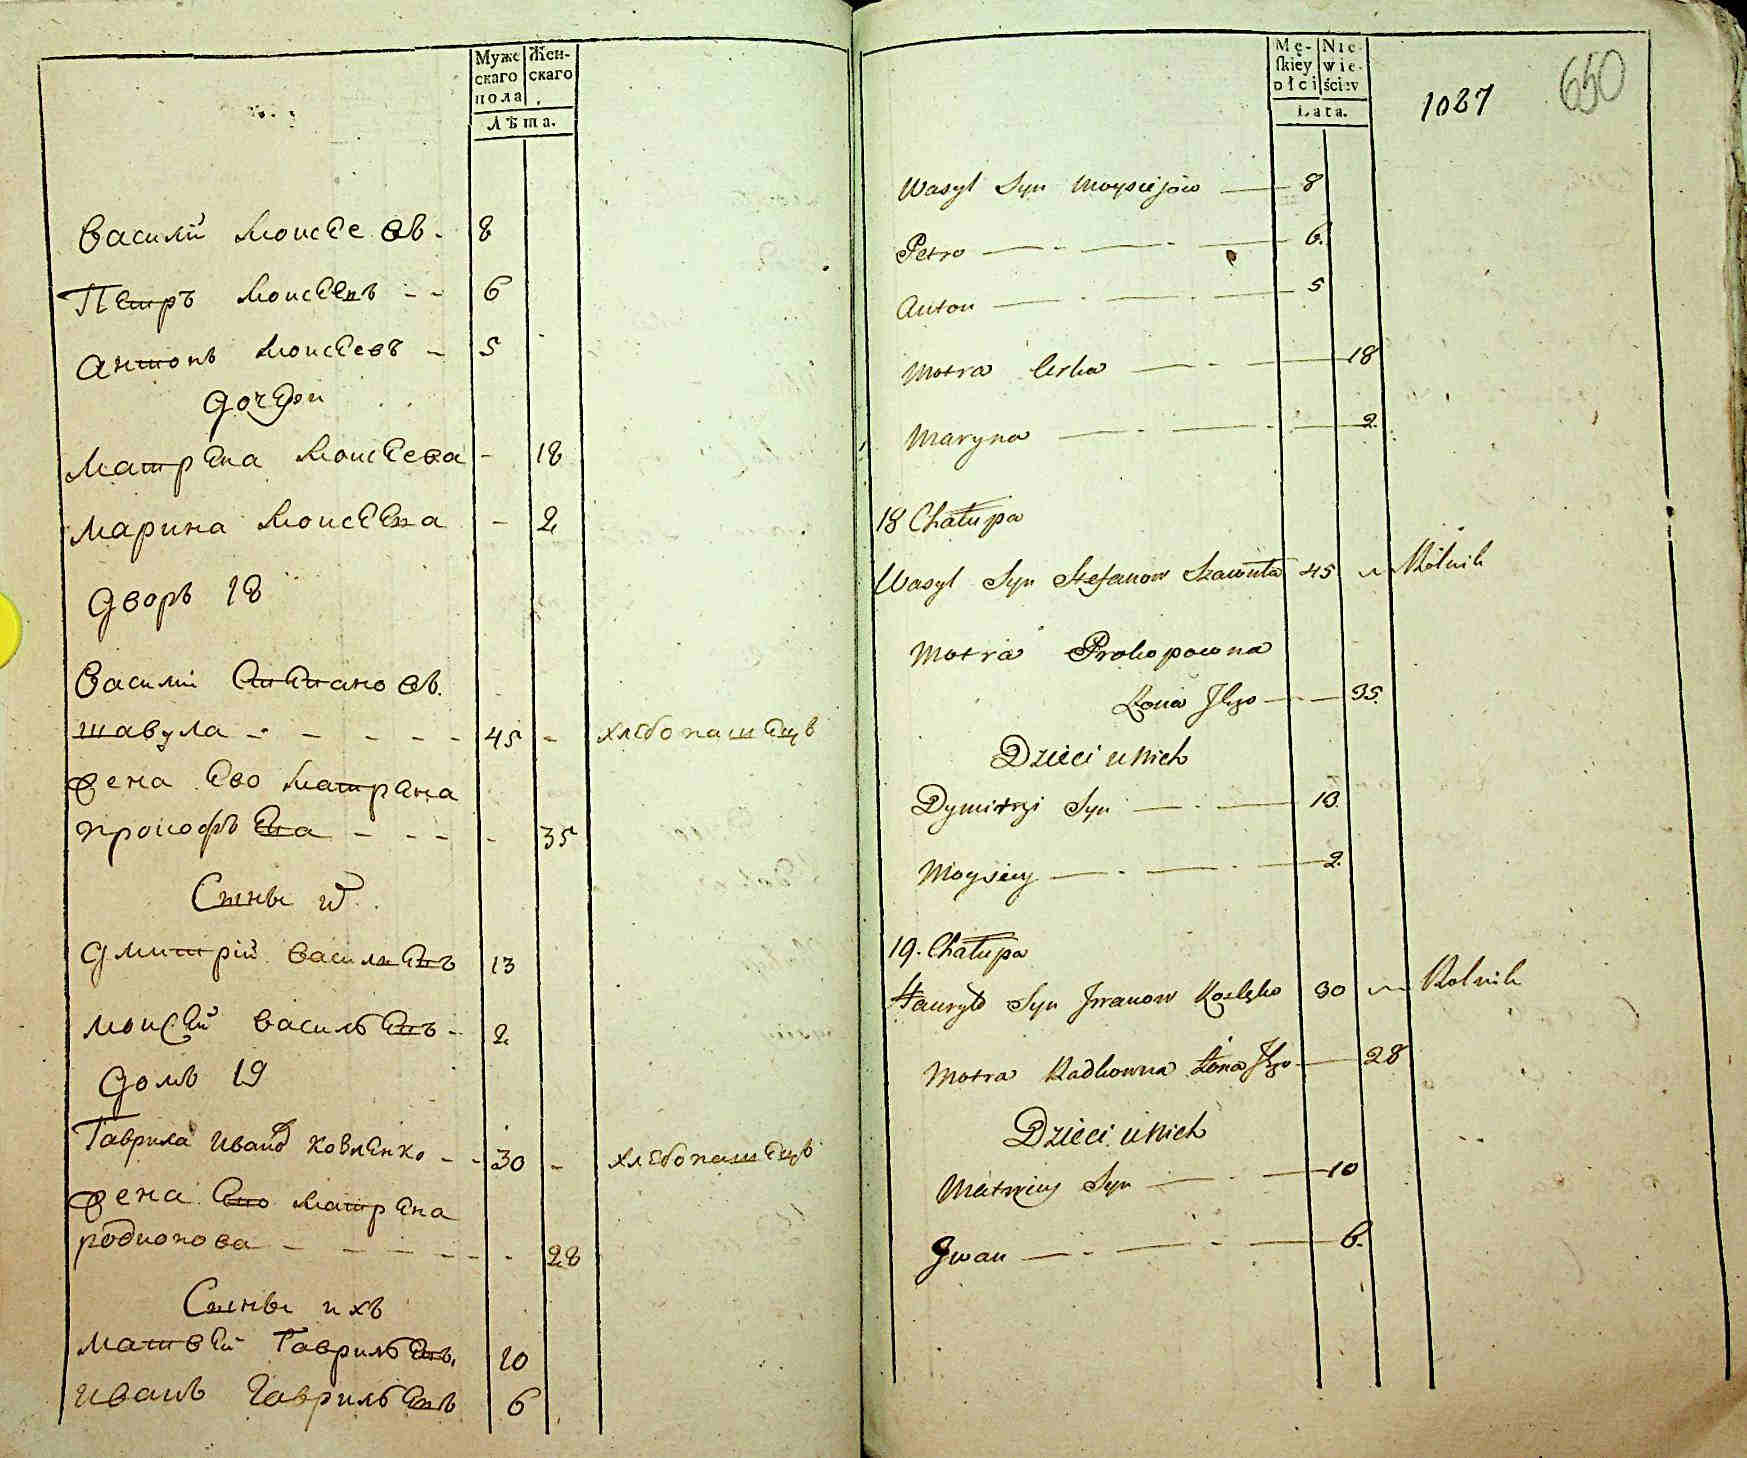 Муже Жен-
скаго скаго
пола
Лѣта.
Василий Моисеевъ - 8
Петръ Моисеевъ - - 6
Антонъ Моисеевъ - 5
дочери
Матрена Моисеева - 18
Марина Моисеева - 2
дворъ 18
Василий Степановъ
шавула - - - - - 45 - хлебопашецъ
жена Ево Матрена
прокофьева - - - - 35
Сыны и
дмитрий васильевъ 13
моисей васильевъ - 2
домъ 19
Гаврила Иванов Козленко - - 30 - хлебопашецъ
жена Ево Матрена
родионова - - - - - - 28
Сыны ихъ
матвей Гаврильевъ 10
иванъ Гаврильевъ 6
Mę- Nie-
skiey wie-
płci ściey
Lata.
1087
650
Wasyl Syn Moysiejow — 8
Petro — - — - — 6.
Anton — - — - — 5
Motra Cerka — - — 18
Maryna — - — - — 2.
18 Chałupa
Wasyl Syn Stefanow Szawuła 45 Rolnik
Motra Prokopowna
Żona Jego — 35.
Dzieci u Nich
Dymitryi Syn — - — 13.
Moysiey — - — - — 2.
19. Chałupa
Hauryło Syn Iwanow Kozlęko 30 Rolnik
Motra Radkowna Żona Jego — 28
Dzieci u Nich
Matwiey Syn — - — 10
Iwan — - — - — 6.